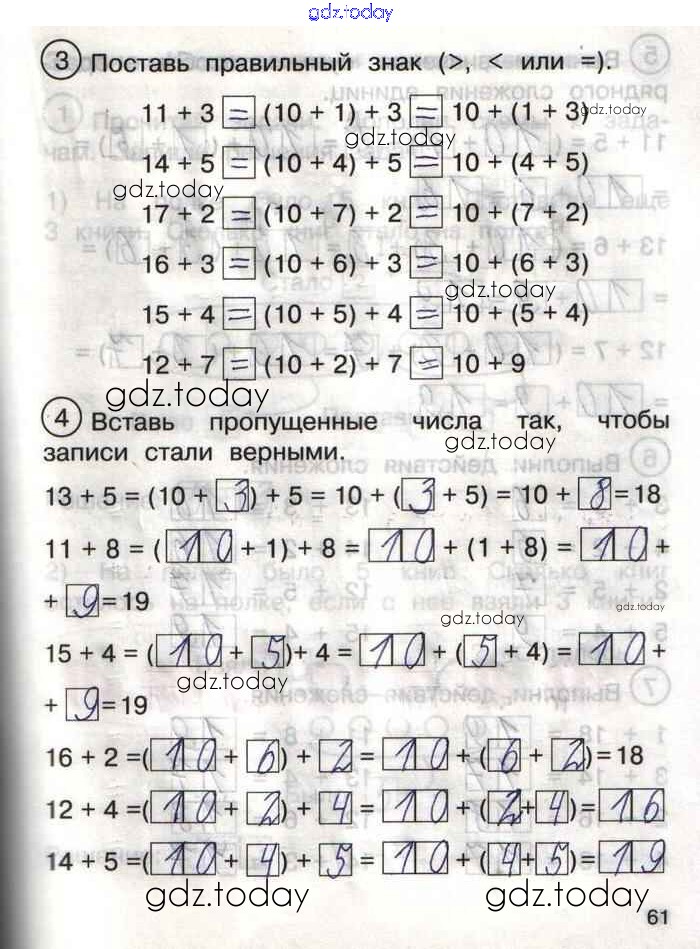 gdz.today
3 Поставь правильный знак (>, < или =).
11 + 3 = (10 + 1) + 3 = 10 + (1 + 3)
gdz.today
gdz.today
14 + 5 = (10 + 4) + 5 = 10 + (4 + 5)
gdz.today
17 + 2 = (10 + 7) + 2 = 10 + (7 + 2)
16 + 3 = (10 + 6) + 3 = 10 + (6 + 3)
gdz.today
15 + 4 = (10 + 5) + 4 = 10 + (5 + 4)
12 + 7 = (10 + 2) + 7 = 10 + 9
gdz.today
4 Вставь пропущенные числа так, чтобы
gdz.today
записи стали верными.
13 + 5 = (10 + 3) + 5 = 10 + (3 + 5) = 10 + 8 = 18
11 + 8 = (10 + 1) + 8 = 10 + (1 + 8) = 10 +
+ 9 = 19
gdz.today
gdz.today
15 + 4 = (10 + 5) + 4 = 10 + (5 + 4) = 10 +
gdz.today
+ 9 = 19
16 + 2 = (10 + 6) + 2 = 10 + (6 + 2) = 18
12 + 4 = (10 + 2) + 4 = 10 + (2 + 4) = 16
14 + 5 = (10 + 4) + 5 = 10 + (4 + 5) = 19
gdz.today
gdz.today
61